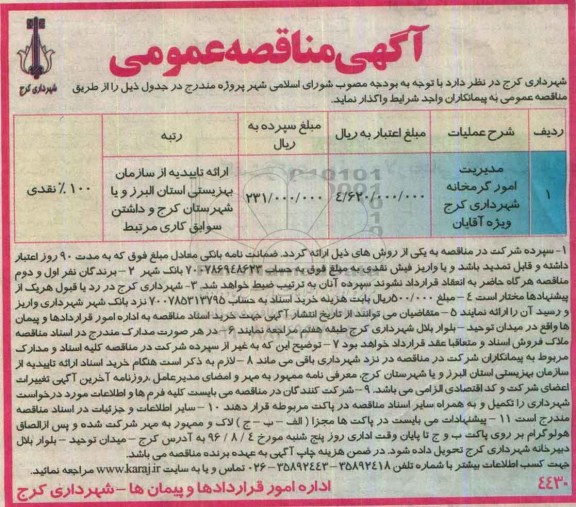 آگهی مناقصه عمومی
شهرداری کرج
شهرداری کرج در نظر دارد با توجه به بودجه مصوب شورای اسلامی شهر پروژه مندرج در جدول ذیل را از طریق
مناقصه عمومی به پیمانکاران واجد شرایط واگذار نماید.
ردیف شرح عملیات مبلغ اعتبار به ریال مبلغ سپرده به ریال رتبه
۱ مدیریت امور گرمخانه شهرداری کرج ویژه آقایان ۴/۶۲۰/۰۰۰/۰۰۰ ۲۳۱/۰۰۰/۰۰۰ ارائه تاییدیه از سازمان بهزیستی استان البرز و یا شهرستان کرج و داشتن سوابق کاری مرتبط ۱۰۰٪ نقدی
۱- سپرده شرکت در مناقصه به یکی از روش های ذیل ارائه گردد. ضمانت نامه بانکی معادل مبلغ فوق که به مدت ۹۰ روز اعتبار
داشته و قابل تمدید باشد و یا واریز فیش نقدی به مبلغ فوق به حساب ۷۰۰۷۸۶۹۴۸۶۲۳ بانک شهر ۲- برندگان نفر اول و دوم
مناقصه هرگاه حاضر به انعقاد قرارداد نشوند سپرده آنان به ترتیب ضبط خواهد شد. ۳- شهرداری کرج در رد یا قبول هریک از
پیشنهادها مختار است ۴- مبلغ ۵۰۰/۰۰۰ریال بابت هزینه خرید اسناد به حساب ۷۰۰۷۸۵۳۱۳۷۹۵ نزد بانک شهر شهرداری واریز
و رسید آن را ارائه نمایند ۵- متقاضیان می توانند از تاریخ انتشار آگهی جهت خرید اسناد مناقصه به اداره امور قراردادها و پیمان
ها واقع در میدان توحید- بلوار بلال شهرداری کرج طبقه هفتم مراجعه نمایند ۶- در هر صورت مدارک مندرج در اسناد مناقصه
ملاک فروش اسناد و متعاقبا عقد قرارداد خواهد بود ۷- توضیح این که به غیر از سپرده شرکت در مناقصه کلیه اسناد و مدارک
مربوط به پیمانکاران شرکت در مناقصه در نزد شهرداری باقی می ماند ۸- لازم به ذکر است هنگام خرید اسناد ارائه تاییدیه از
سازمان بهزیستی استان البرز و یا شهرستان کرج، معرفی نامه ممهور به مهر و امضای مدیرعامل ،روزنامه آخرین آگهی تغییرات
اعضای شرکت و کد اقتصادی الزامی می باشد. ۹- شرکت کنندگان در مناقصه می بایست کلیه فرم ها و اطلاعات مورد درخواست
شهرداری را تکمیل و به همراه سایر اسناد مناقصه در پاکت مربوطه قرار دهند ۱۰- سایر اطلاعات و جزئیات در اسناد مناقصه
مندرج است ۱۱- پیشنهادات می بایست در پاکت ها مجزا ( الف – ب – ج ) لاک و ممهور به مهر شرکت شده و پس ازالصاق
هولوگرام بر روی پاکت ب و ج تا پایان وقت اداری روز پنج شنبه مورخ ۹۶/۸/۴ به آدرس کرج- میدان توحید- بلوار بلال
دبیرخانه شهرداری کرج تحویل داده شود. در ضمن هزینه چاپ آگهی به عهده برنده مناقصه می باشد.
جهت کسب اطلاعات بیشتر با شماره تلفن ۳۵۸۹۲۴۱۸ - ۳۵۸۹۲۴۴۳-۰۲۶ تماس و یا به سایت www.karaj.ir مراجعه نمائید.
۴۴۳۰ اداره امور قراردادها و پیمان ها – شهرداری کرج